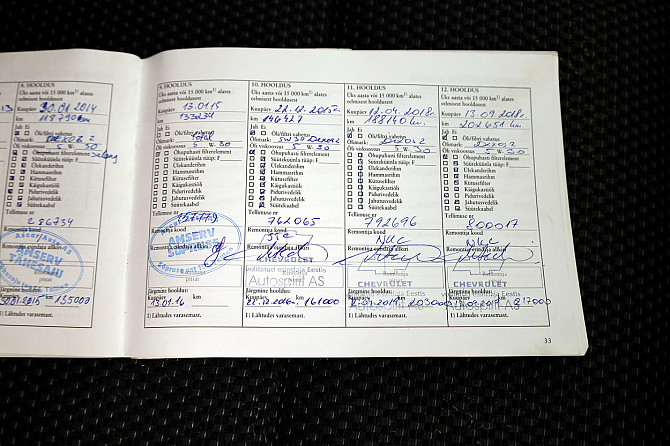 8. HOOLDUS
Üks aasta või 15 000 km¹⁾ alates
eelmisest hooldusest
Kuupäev 30.01.2014
km 118790 km
Jah Ei
Õli/filtri vahetus
Õlimark: Dexos 2
Õli viskoossus 5 W 30
Õhupuhasti filterelement
Süüteküünla tüüp: F
Ülekanderihm
Hammasrihm
Kütusefilter
Käigukastiõli
Pidurivedelik
Jahutusvedelik
Süütekaabel
Tellimuse nr
286734
Remontija kood
Remontija esindaja allkiri
AMSERV
km
135000
1) Lähtudes varasemast.
9. HOOLDUS
Üks aasta või 15 000 km¹⁾ alates
eelmisest hooldusest
Kuupäev 13.01.15
km 133234
Jah Ei
Õli/filtri vahetus
Õlimark: Total
Õli viskoossus 5 W 30
Õhupuhasti filterelement
Süüteküünla tüüp: F
Ülekanderihm
Hammasrihm
Kütusefilter
Käigukastiõli
Pidurivedelik
Jahutusvedelik
Süütekaabel
Tellimuse nr
Remontija kood
Remontija esindaja allkiri
AMSERV
Järgmine hooldus:
Kuupäev km
13.01.16
1) Lähtudes varasemast.
10. HOOLDUS
Üks aasta või 15 000 km¹⁾ alates
eelmisest hooldusest
Kuupäev 22.12.2015
km 146427
Jah Ei
Õli/filtri vahetus
Õlimark: 5W30 Dexos2
Õli viskoossus W
Õhupuhasti filterelement
Süüteküünla tüüp: F
Ülekanderihm
Hammasrihm
Kütusefilter
Käigukastiõli
Pidurivedelik
Jahutusvedelik
Süütekaabel
Tellimuse nr
762065
Remontija kood
Remontija esindaja allkiri
CHEVROLET
volitatud esindaja Eestis
Autospirit AS
Järgmine hooldus:
Kuupäev km
22.12.2016 161000
1) Lähtudes varasemast.
11. HOOLDUS
Üks aasta või 15 000 km¹⁾ alates
eelmisest hooldusest
Kuupäev 12.04.2018
km 188140 km.
Jah Ei
Õli/filtri vahetus
Õlimark: Dexos 2
Õli viskoossus 5 W 30
Õhupuhasti filterelement
Süüteküünla tüüp: F
Ülekanderihm
Hammasrihm
Kütusefilter
Käigukastiõli
Pidurivedelik
Jahutusvedelik
Süütekaabel
Tellimuse nr
792696
Remontija kood
Remontija esindaja allkiri
CHEVROLET
volitatud esindaja Eestis
Autospirit AS
Järgmine hooldus:
Kuupäev km
203000
1) Lähtudes varasemast.
12. HOOLDUS
Üks aasta või 15 000 km¹⁾ alates
eelmisest hooldusest
Kuupäev 13.09.2018
km 201651 km.
Jah Ei
Õli/filtri vahetus
Õlimark: Dexos 2
Õli viskoossus 5 W 30
Õhupuhasti filterelement
Süüteküünla tüüp: F
Ülekanderihm
Hammasrihm
Kütusefilter
Käigukastiõli
Pidurivedelik
Jahutusvedelik
Süütekaabel
Tellimuse nr
800017
Remontija kood
Remontija esindaja allkiri
CHEVROLET
volitatud esindaja Eestis
Autospirit AS
Järgmine hooldus:
Kuupäev km
217000
1) Lähtudes varasemast.
33